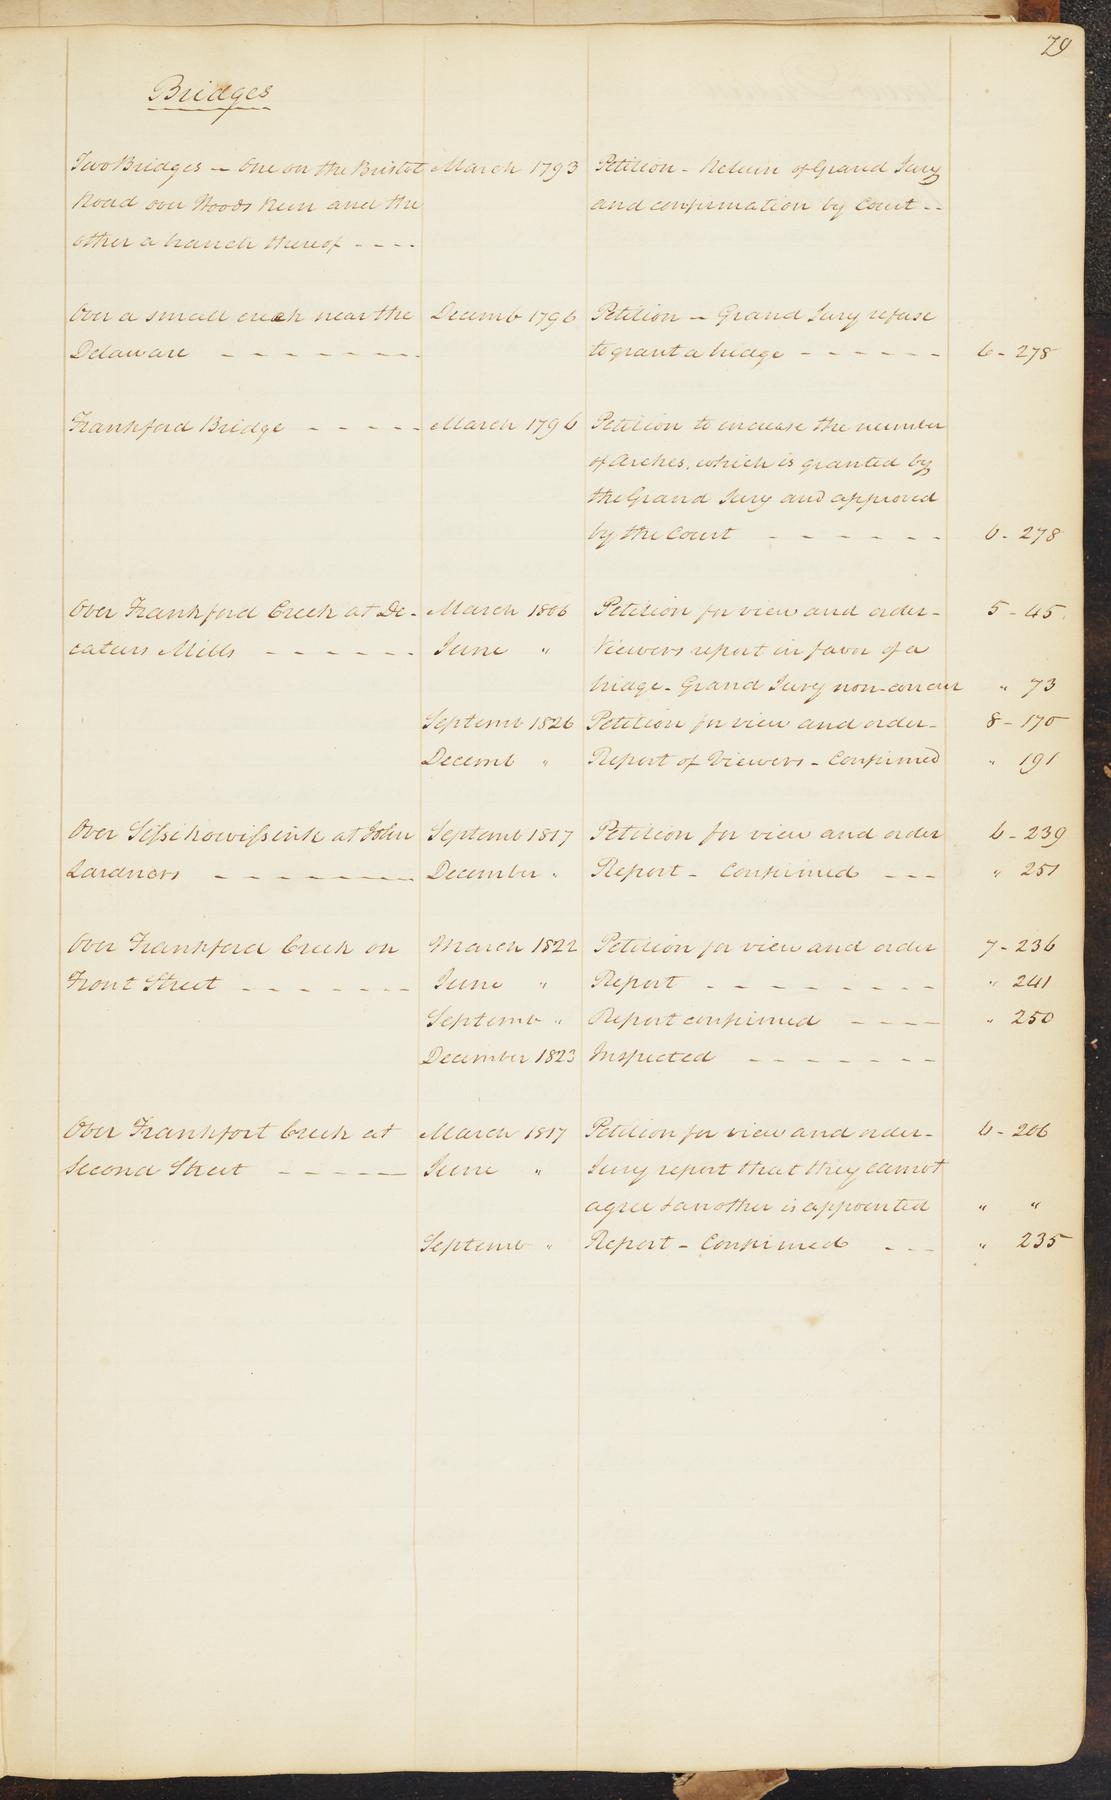 79
Bridges
Two Bridges — One on the Bristol March 1793 Petition - Return of Grand Jury
Road over Woods Run and the and confirmation by Court --
other a branch thereof - - - -
Over a small creek near the Decemb 1796 Petition - Grand Jury refuse
Delaware - - - - - - - - to grant a bridge - - - - - - 6 - 278
Frankford Bridge - - - - - March 1796 Petition to increase the number
of Arches, which is granted by
the Grand Jury and approved
by the Court - - - - - - 6 - 278
Over Frankford Creek at De- March 1806 Petition for view and order - 5 - 45
caturs Mills - - - - - - June " Viewers report in favor of a
bridge - Grand Jury non-concur " 73
Septemb 1826 Petition for view and order - 8 - 170
Decemb " Report of Viewers - Confirmed " 191
Over Sissinowissink at John Septemb 1817 Petition for view and order 6 - 239
Lardners - - - - - - - - December " Report - Confirmed - - - " 251
Over Frankford Creek on March 1822 Petition for view and order 7 - 236
Front Street - - - - - - - June " Report - - - - - - - - - " 241
Septemb " Report confirmed - - - - " 250
December 1823 Inspected - - - - - - -
Over Frankfort Creek at March 1817 Petition for view and order - 6 - 206
Second Street - - - - - June " Jury report that they cannot
agree & another is appointed " "
Septemb " Report - Confirmed - - - " 235